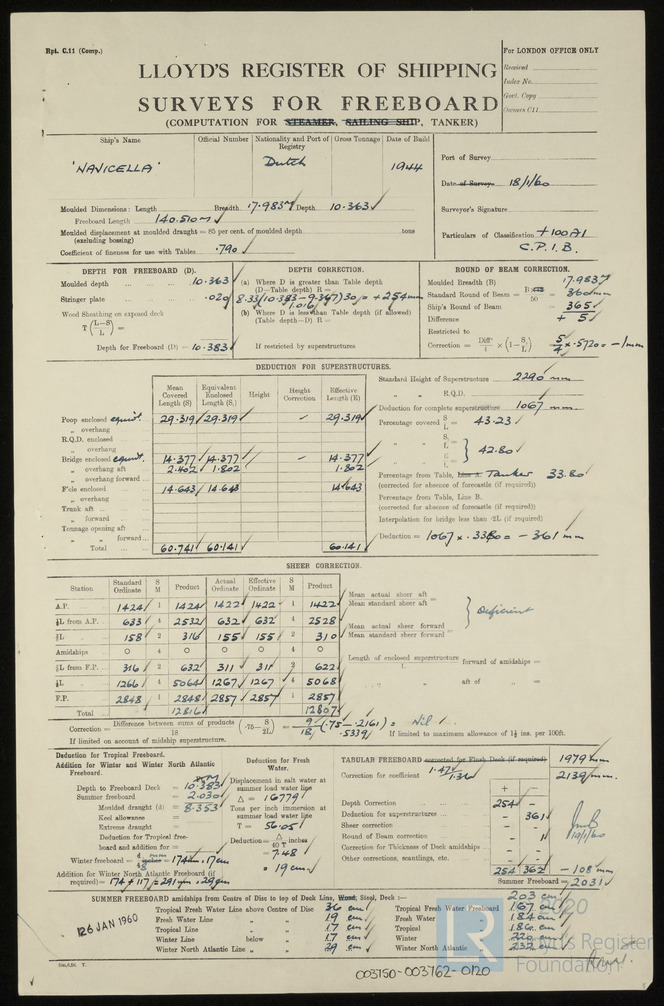 Rpt. C.11 (Comp.)
For LONDON OFFICE ONLY
Received
Index No.
Govt. Copy
Owners C11
LLOYD'S REGISTER OF SHIPPING
SURVEYS FOR FREEBOARD
(COMPUTATION FOR STEAMER, SAILING SHIP, TANKER)
Ship's Name
Official Number
Nationality and Port of Registry
Gross Tonnage
Date of Build
'NAVICELLA'
Dutch
1944
Port of Survey
Date of Survey 18/1/60
Surveyor's Signature
Particulars of Classification +100A1
C.P.I.B.
Moulded Dimensions: Length Breadth 17.983M Depth 10.363
Freeboard Length 140.510M
Moulded displacement at moulded draught = 85 per cent. of moulded depth tons
(excluding bossing)
Coefficient of fineness for use with Tables .790
DEPTH FOR FREEBOARD (D).
Moulded depth 10.363
Stringer plate .020
Wood Sheathing on exposed deck
T (L-S)/L =
Depth for Freeboard (D) = 10.383
DEPTH CORRECTION.
(a) Where D is greater than Table depth
(D-Table depth) R =
8.33(10.383 - 9.367)30 = + 254mm
1.016
(b) Where D is less than Table depth (if allowed)
(Table depth-D) R =
If restricted by superstructures
ROUND OF BEAM CORRECTION.
Moulded Breadth (B) 17.983M
Standard Round of Beam = 360mm
Ship's Round of Beam = 365
Difference + 5
Restricted to
Correction = Diff/4 × (1-S/L) = 5/4 × .5720 = -1mm
DEDUCTION FOR SUPERSTRUCTURES.
Mean Covered Length (S)
Equivalent Enclosed Length (S₁)
Height
Height Correction
Effective Length (E)
Poop enclosed equiv. 29.319 29.319 - 29.319
„ overhang
R.Q.D. enclosed
„ overhang
Bridge enclosed equiv. 14.377 14.377 - 14.377
„ overhang aft 2.402 1.802 1.802
„ overhang forward
F'cle enclosed 14.643 14.643 14.643
„ overhang
Trunk aft
„ forward
Tonnage opening aft
„ „ forward
Total 60.741 60.141 60.141
Standard Height of Superstructure 2290 mm
„ „ R.Q.D.
Deduction for complete superstructure 1067 mm
Percentage covered S/L = 43.23
„ „ S₁/L =
„ „ E/L = } 42.80
Percentage from Table, Tanker 33.80
(corrected for absence of forecastle (if required))
Percentage from Table, Line B.
(corrected for absence of forecastle (if required))
Interpolation for bridge less than ·2L (if required)
Deduction = 1067 × .3380 = - 361 mm
SHEER CORRECTION.
Station
Standard Ordinate
S M
Product
Actual Ordinate
Effective Ordinate
S M
Product
A.P. 1424 1 1424 1422 1422 1 1422
⅙L from A.P. 633 4 2532 632 632 4 2528
⅓L 158 2 316 155 155 2 310
Amidships 0 4 0 0 0 4 0
⅓L from F.P. 316 2 632 311 311 2 622
⅙L 1266 4 5064 1267 1267 4 5068
F.P. 2848 1 2848 2857 2857 1 2857
Total 12816 12807
Mean actual sheer aft =
Mean standard sheer aft
Mean actual sheer forward =
Mean standard sheer forward
} Deficient
Length of enclosed superstructure forward of amidships =
L
„ „ aft of „ =
Correction = Difference between sums of products/18 (·75-S/2L) = 9/18 (.75-.2161) = Nil
.5339
If limited on account of midship superstructure.
If limited to maximum allowance of 1½ ins. per 100ft.
Deduction for Tropical Freeboard.
Addition for Winter and Winter North Atlantic Freeboard.
Depth to Freeboard Deck = 10.383
Summer freeboard = 2.030
Moulded draught (d) = 8.353
Keel allowance =
Extreme draught =
Deduction for Tropical freeboard and addition for
Winter freeboard = 174mm 17cm
Addition for Winter North Atlantic Freeboard (if required) = 174 + 117 = 291mm 29cm
Deduction for Fresh Water.
Displacement in salt water at summer load water line
Δ = 16779
Tons per inch immersion at summer load water line
T = 56.05
Deduction = Δ/40 T inches
= 7.48
= 19 cm
TABULAR FREEBOARD corrected for Flush Deck (if required) 1979mm
Correction for coefficient 1.47/1.36 2139mm
+ -
Depth Correction 254 -
Deduction for superstructures - 361
Sheer correction - -
Round of Beam correction - 1
Correction for Thickness of Deck amidships - -
Other corrections, scantlings, etc. -
254 362 -108 mm
Summer Freeboard = 2031
19/1/60
SUMMER FREEBOARD amidships from Centre of Disc to top of Deck Line, Wood, Steel, Deck :- 203 cm
Tropical Fresh Water Line above Centre of Disc 36 cm
Fresh Water Line „ „ 19 cm
Tropical Line „ „ 17 cm
Winter Line below „ 17 cm
Winter North Atlantic Line „ „ 29 cm
Tropical Fresh Water Freeboard 167 cm
Fresh Water „ 184 cm
Tropical „ 186 cm
Winter „ 220 cm
Winter North Atlantic „ 232 cm
26 JAN 1960
© 2020
LR
Lloyd's Register
Foundation
003750-003762-0120